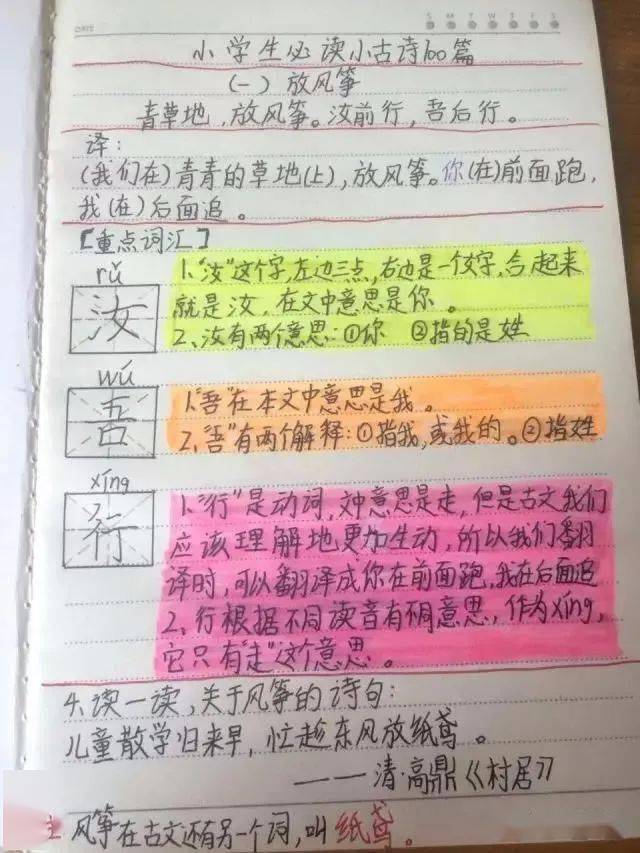 DATE
S M T W T F S
小学生必读小古诗100篇
(一) 放风筝
青草地,放风筝。汝前行,吾后行。
译:
(我们在)青青的草地(上),放风筝。你(在)前面跑,
我(在)后面追。
【重点词汇】
rǔ
汝
1、"汝"这个字,左边三点,右边是一个女字,合起来
就是汝,在文中意思是你。
2、汝有两个意思:①你 ②指的是姓
wú
吾
1、"吾"在本文中意思是我。
2、"吾"有两个解释:①指我,或我的。②指姓
xíng
行
1、"行"是动词,文中意思是走,但是古文我们
应该理解地更加生动,所以我们翻
译时,可以翻译成你在前面跑,我在后面追
2、行根据不同读音有不同意思,作为xíng,
它只有"走"这个意思。
4、读一读,关于风筝的诗句:
儿童散学归来早,忙趁东风放纸鸢。
——清·高鼎《村居》
风筝在古文还有另一个词,叫纸鸢。